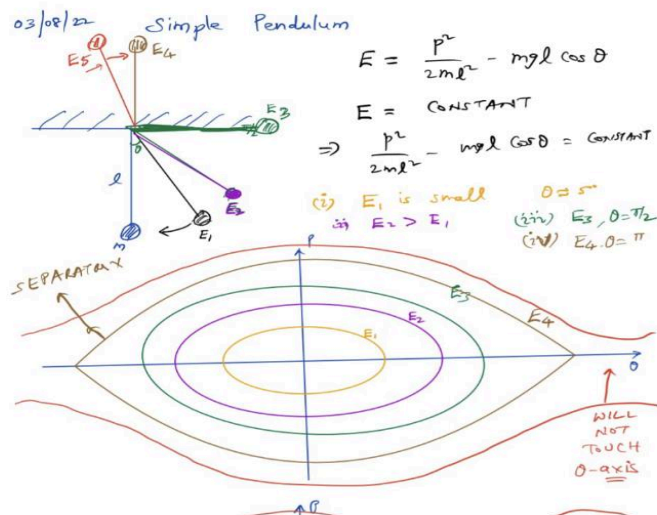 03/08/22 Simple Pendulum
E5
E4
E = p²/2ml² - mgl cos θ
E = CONSTANT
⇒ p²/2ml² - mgl cos θ = CONSTANT
E3
θ
l
E2
E1
m
(i) E1 is small θ ≈ 5°
ii) E2 > E1
(iii) E3, θ = π/2
(iv) E4. θ = π
P
SEPARATRIX
E3
E2
E4
E1
θ
WILL
NOT
TOUCH
θ-axis
P